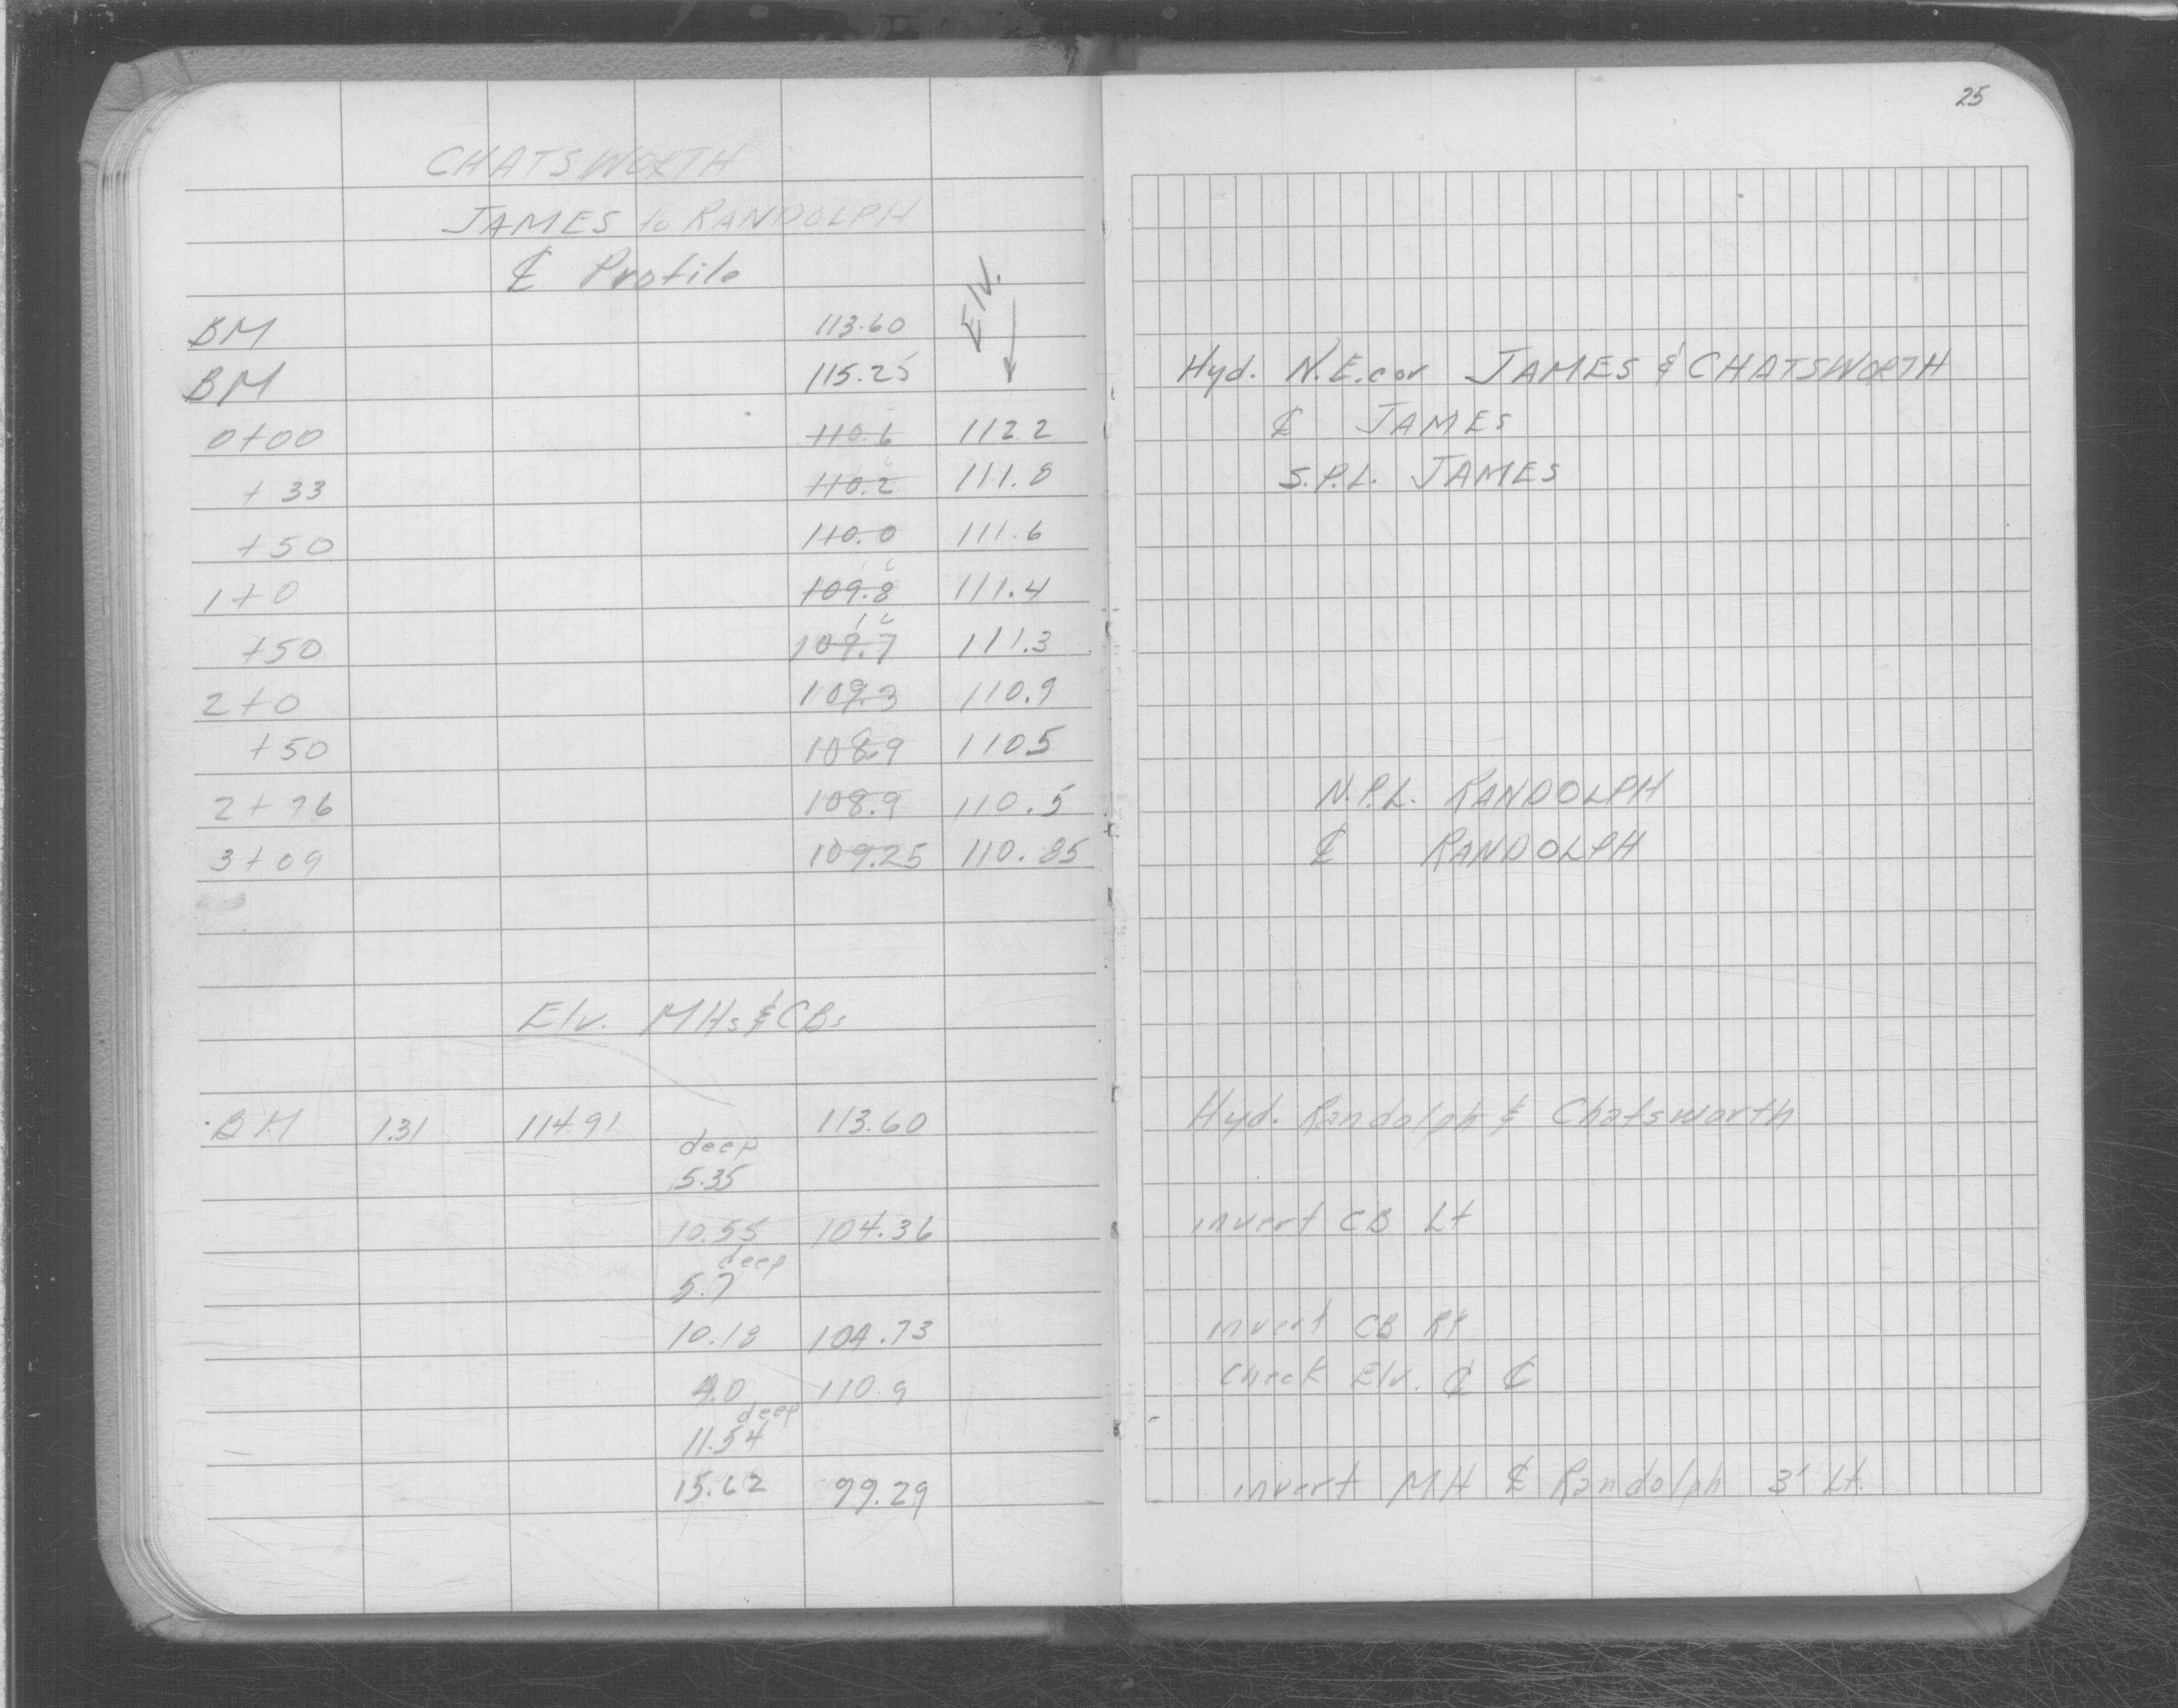 25
CHATSWORTH
JAMES to RANDOLPH
℄ Profile
Elv.
BM 113.60
BM 115.25 Hyd. N.E. cor JAMES & CHATSWORTH
0+00 110.6 112.2 ℄ JAMES
+33 110.2 111.8 S.P.L. JAMES
+50 110.0 111.6
1+0 109.8 111.4
+50 109.7 111.3
2+0 109.3 110.9
+50 108.9 110.5
2+76 108.9 110.5 N.P.L. RANDOLPH
3+09 109.25 110.85 ℄ RANDOLPH
Elv. MHs & CBs
BM 1.31 114.91 113.60 Hyd. Randolph & Chatsworth
deep
5.35
10.55 104.36 invert CB Lt
deep
5.7
10.18 104.73 invert CB Rt
4.0 110.9 Check Elv. ℄ ℄
deep
11.54
15.62 99.29 invert MH ℄ Randolph 3' Lt.